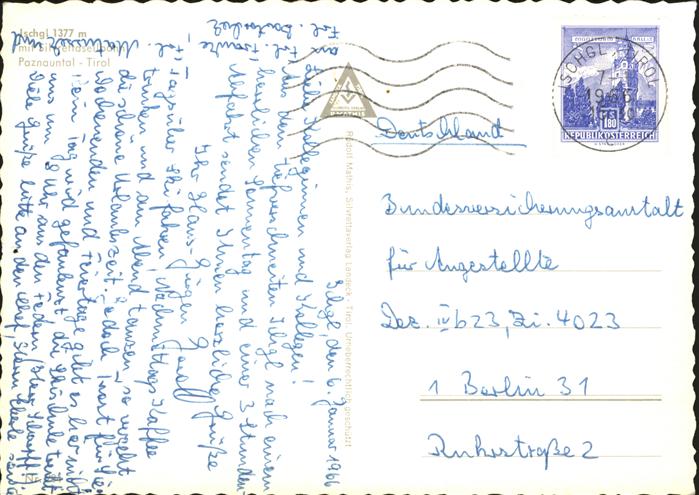 Ischgl 1377 m
mit Silvrettaseilbahn
Paznauntal - Tirol
Ischgl, den 6. Januar 1966
Liebe Kolleginnen und Kollegen!
Aus dem tiefverschneiten Ischgl nach einem
herrlichen Sonnentag und einer 3 Stunden
Abfahrt sendet Ihnen herzliche Grüße
Ihr Hans-Jürgen
Tagsüber Skifahren, Nachmittags Kaffee
trinken und am Abend tanzen, so vergeht
die schöne Urlaubszeit, jedoch
Wochenenden und Feiertage gibt es hier nicht
Kein Tag wird gefaulenzt, die Skischule
uns um 9 Uhr aus den Federn
Viele Grüße bitte an den Chef,
Rudolf Mathis, Silvrettaverlag Landeck - Tirol, Urheberrechtlich geschützt
ISCHGL TIROL
1966
S 1.80
REPUBLIK ÖSTERREICH
Deutschland
Bundesversicherungsanstalt
für Angestellte
Dez. IV b 23, Zi. 4023
1 Berlin 31
Ruhrstraße 2